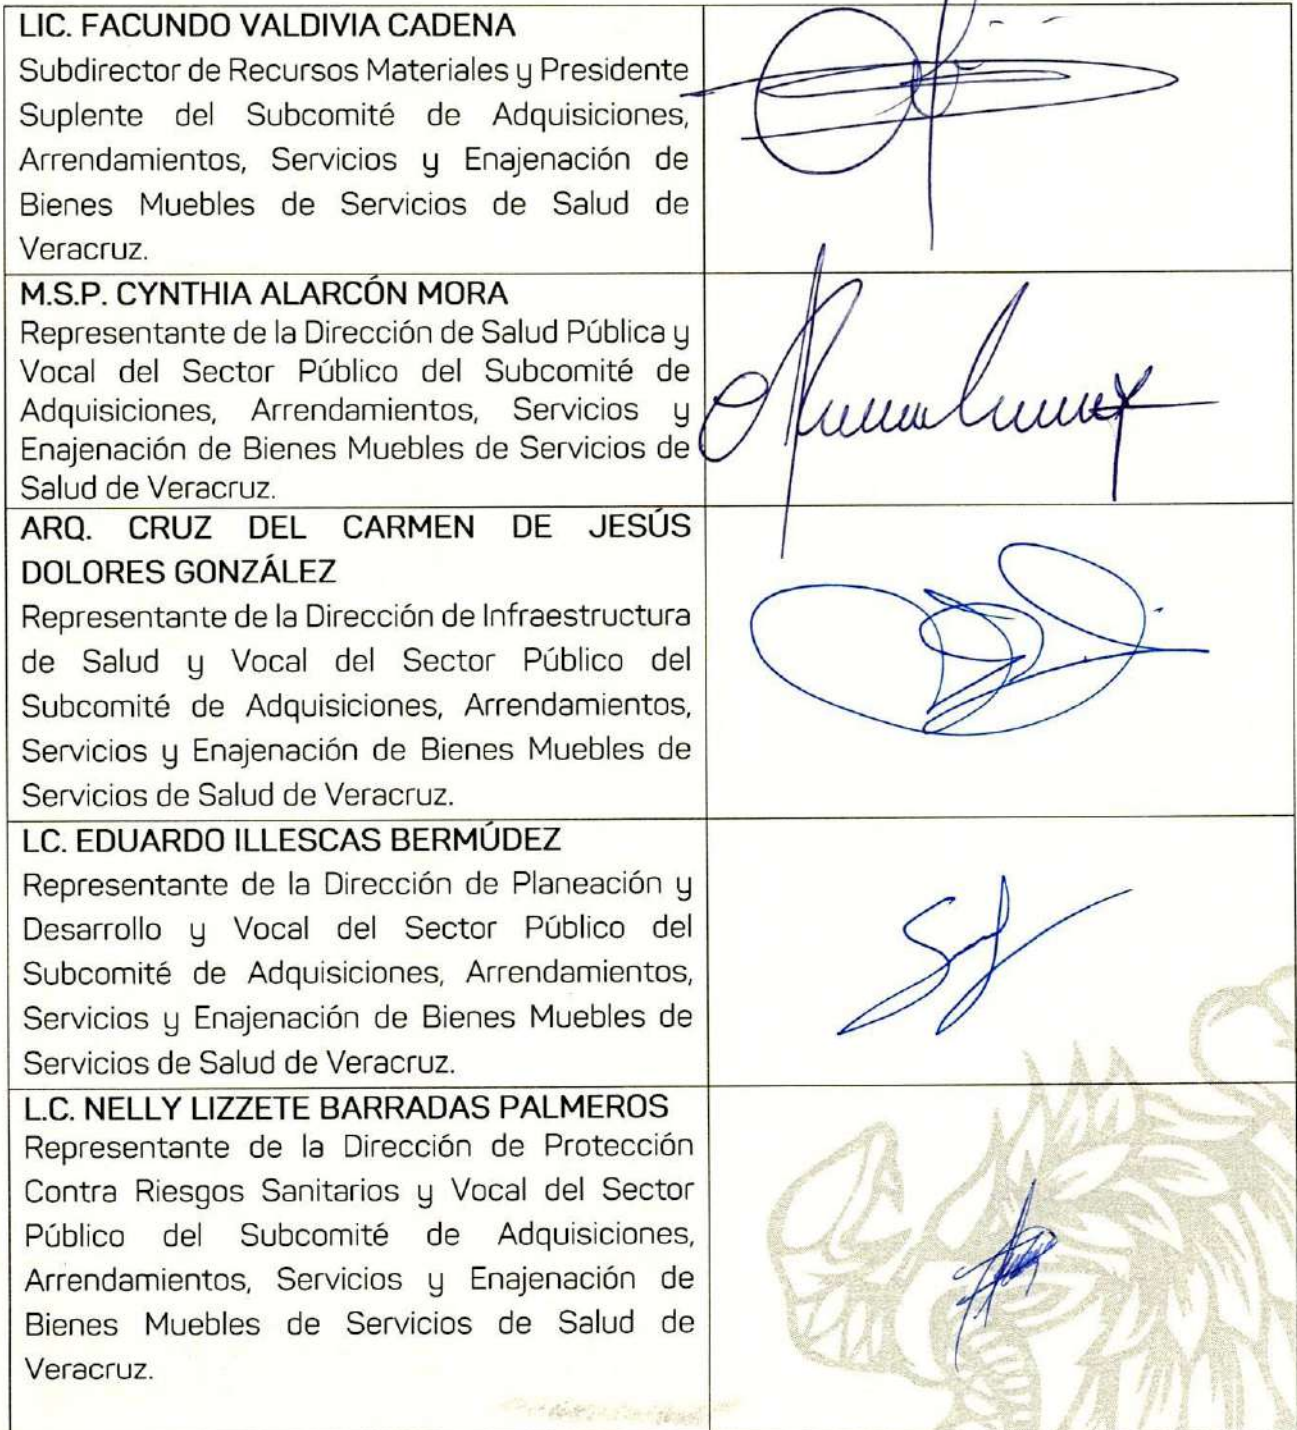 LIC. FACUNDO VALDIVIA CADENA
Subdirector de Recursos Materiales y Presidente
Suplente del Subcomité de Adquisiciones,
Arrendamientos, Servicios y Enajenación de
Bienes Muebles de Servicios de Salud de
Veracruz.
M.S.P. CYNTHIA ALARCÓN MORA
Representante de la Dirección de Salud Pública y
Vocal del Sector Público del Subcomité de
Adquisiciones, Arrendamientos, Servicios y
Enajenación de Bienes Muebles de Servicios de
Salud de Veracruz.
ARQ. CRUZ DEL CARMEN DE JESÚS
DOLORES GONZÁLEZ
Representante de la Dirección de Infraestructura
de Salud y Vocal del Sector Público del
Subcomité de Adquisiciones, Arrendamientos,
Servicios y Enajenación de Bienes Muebles de
Servicios de Salud de Veracruz.
LC. EDUARDO ILLESCAS BERMÚDEZ
Representante de la Dirección de Planeación y
Desarrollo y Vocal del Sector Público del
Subcomité de Adquisiciones, Arrendamientos,
Servicios y Enajenación de Bienes Muebles de
Servicios de Salud de Veracruz.
L.C. NELLY LIZZETE BARRADAS PALMEROS
Representante de la Dirección de Protección
Contra Riesgos Sanitarios y Vocal del Sector
Público del Subcomité de Adquisiciones,
Arrendamientos, Servicios y Enajenación de
Bienes Muebles de Servicios de Salud de
Veracruz.